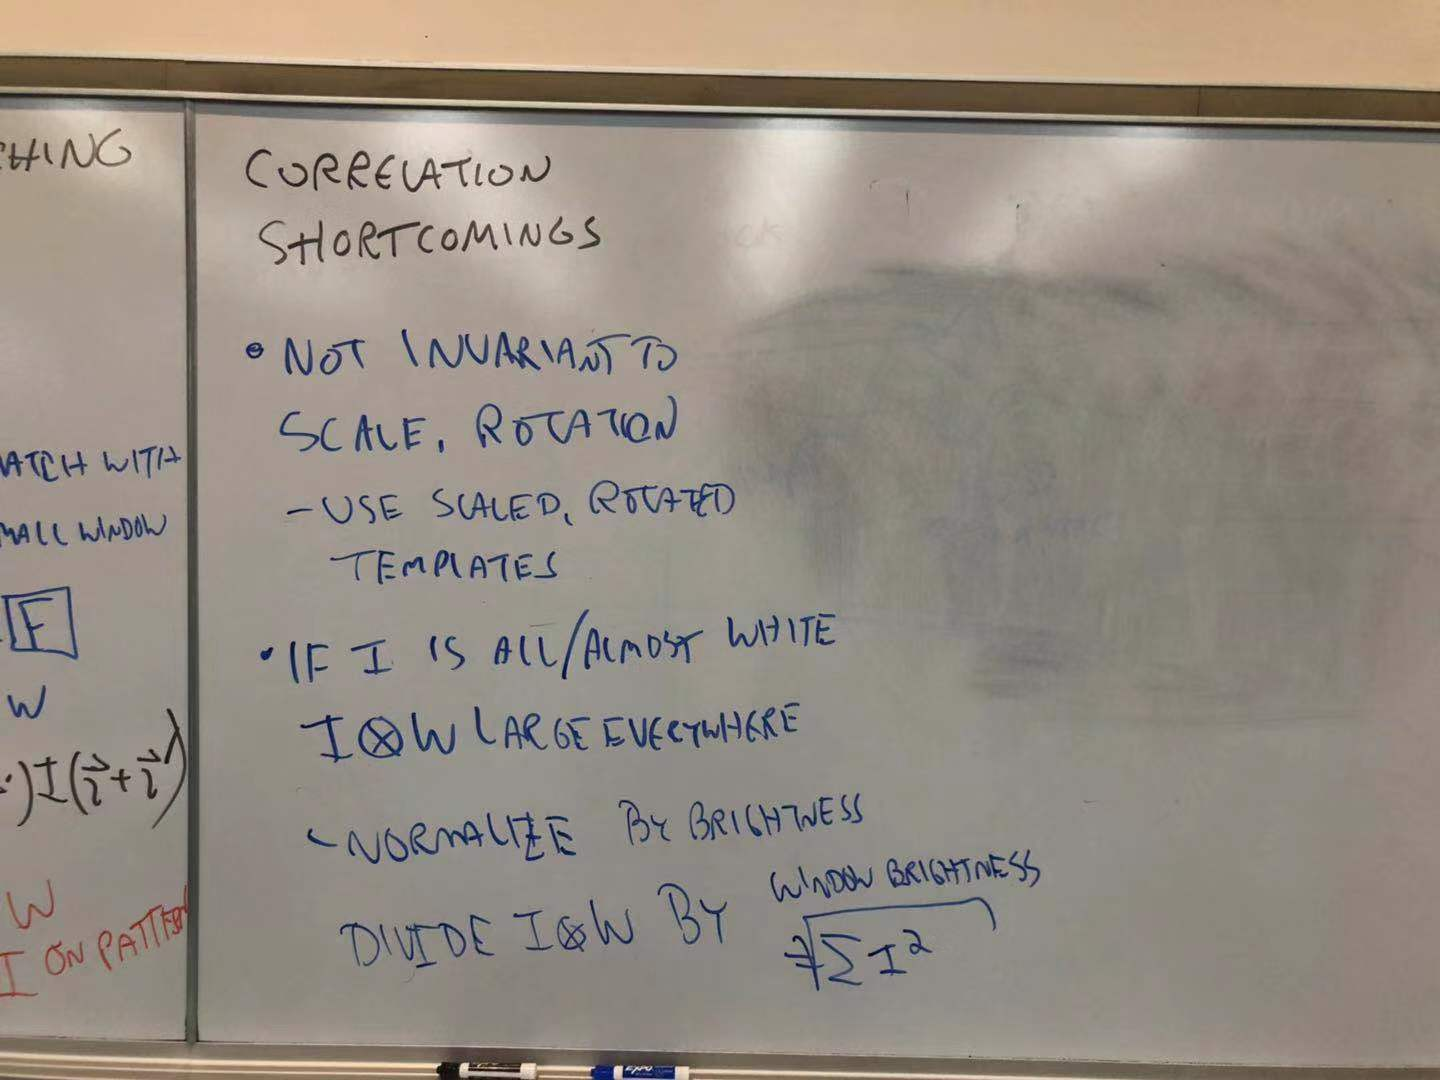 CHING
ATCH WITH
MALL WINDOW
F
W
)I(i⃗ + i⃗')
W
I ON PATTERN
CORRELATION
SHORTCOMINGS
• NOT INVARIANT TO
SCALE, ROTATION
- USE SCALED, ROTATED
TEMPLATES
• IF I IS ALL/ALMOST WHITE
I⊗W LARGE EVERYWHERE
- NORMALIZE BY BRIGHTNESS
WINDOW BRIGHTNESS
DIVIDE I⊗W BY √ΣI²
EXPO